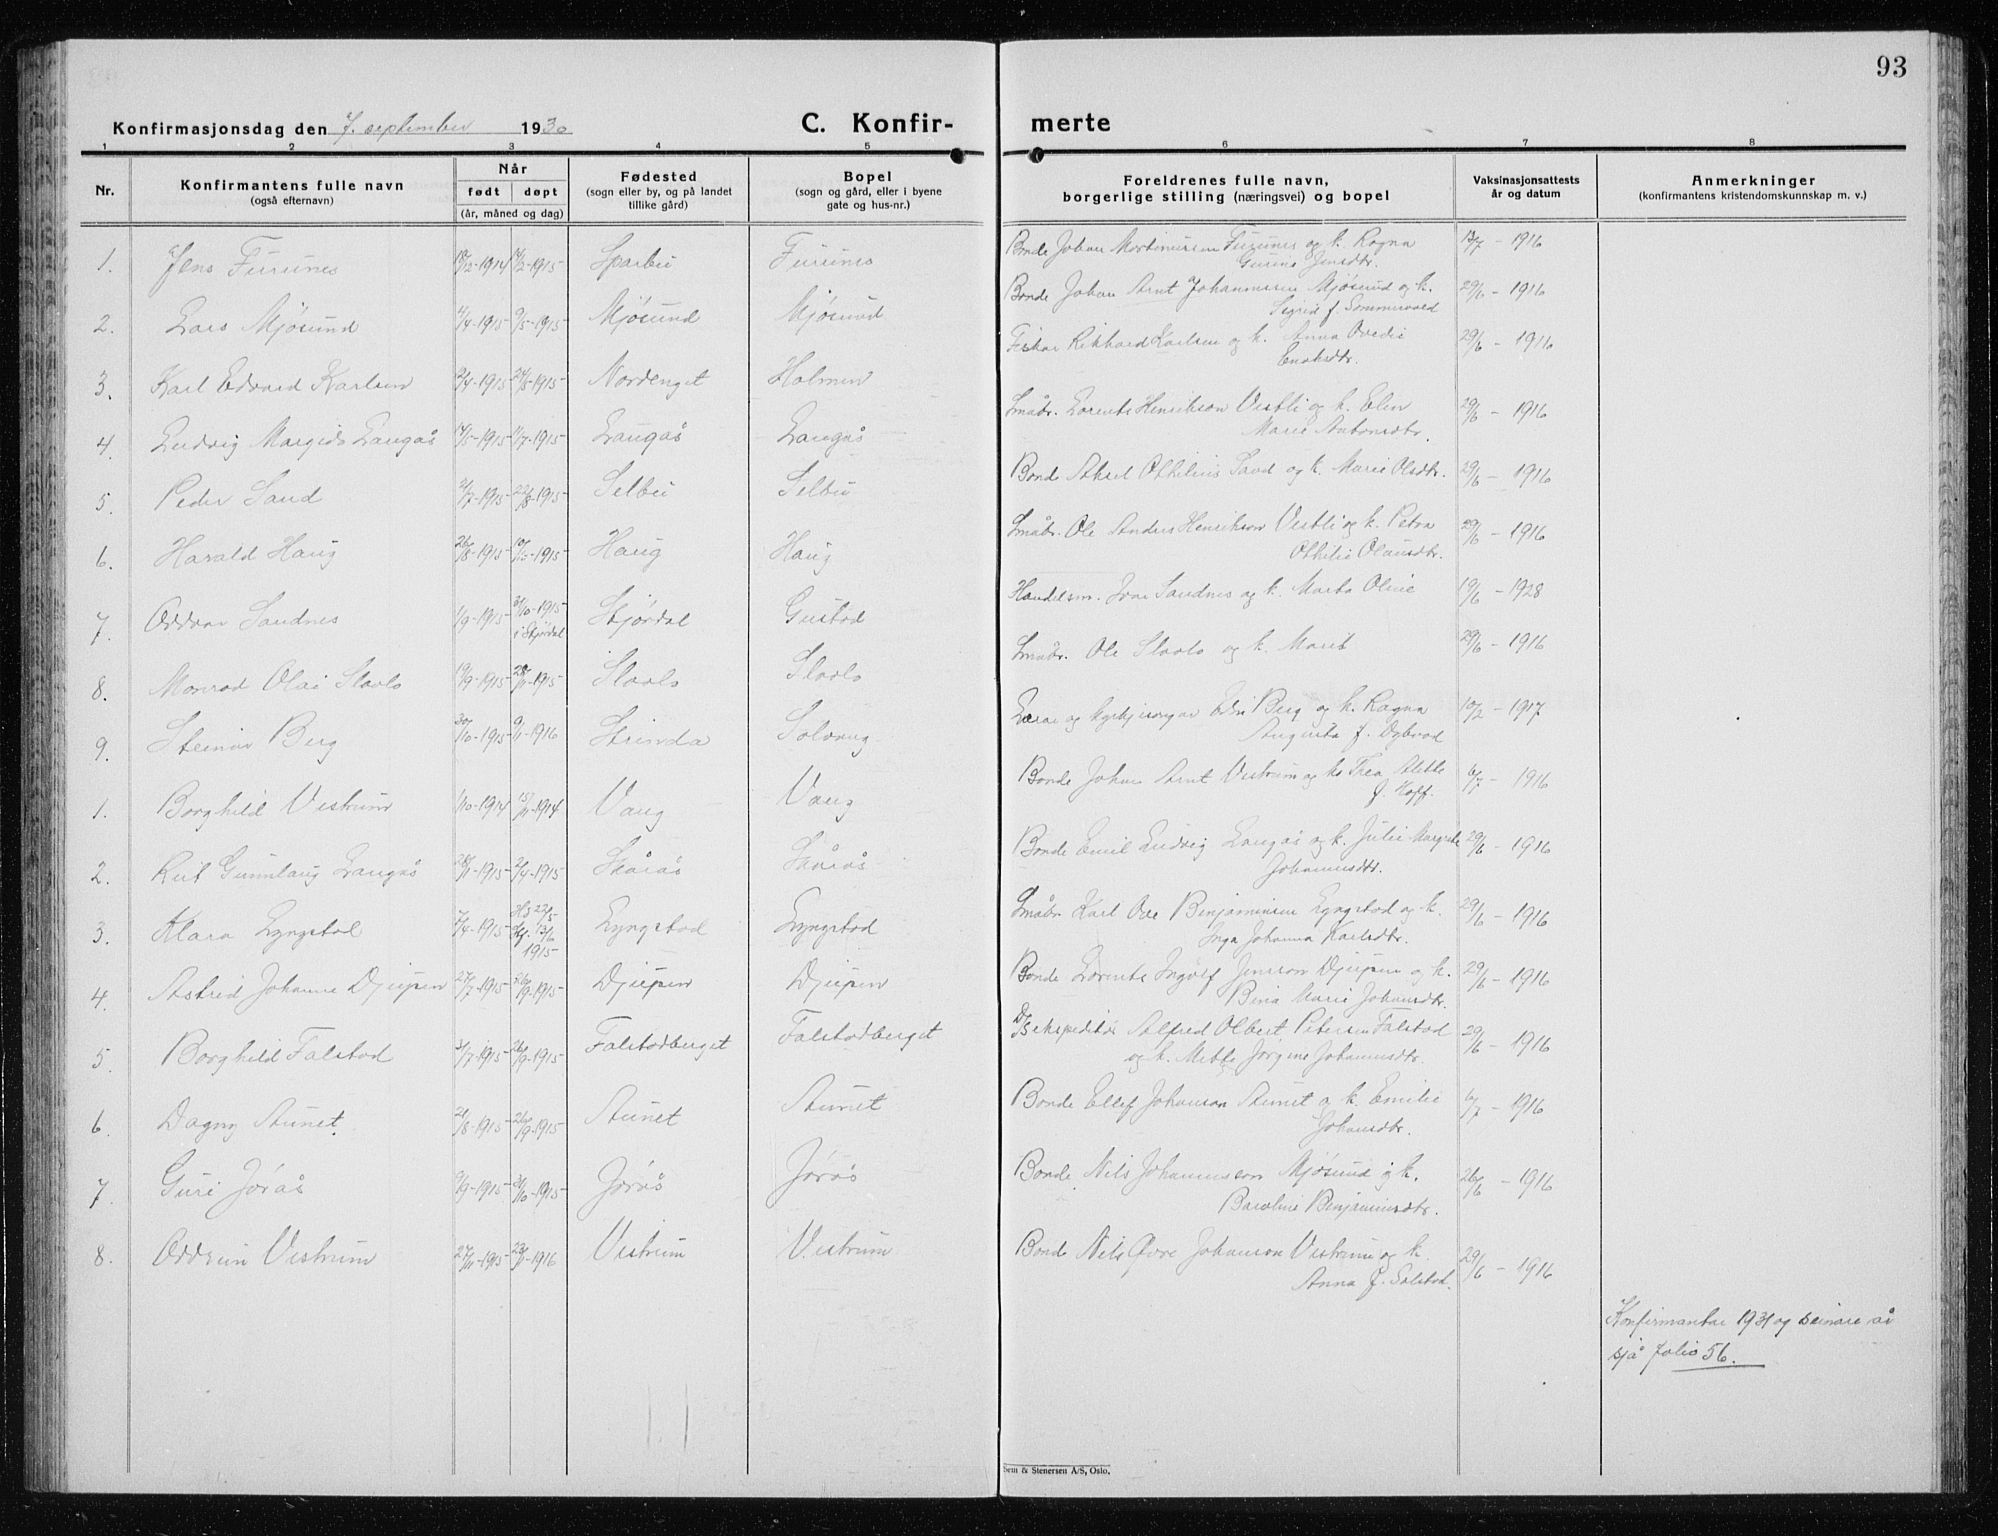 93
Konfirmasjonsdag den 7. september 1930
C. Konfir- merte
1 2 3 4 5 6 7 8
Nr.
Konfirmantens fulle navn
(også efternavn)
Når
født døpt
(år, måned og dag)
Fødested
(sogn eller by, og på landet
tillike gård)
Bopel
(sogn og gård, eller i byene
gate og hus-nr.)
Foreldrenes fulle navn,
borgerlige stilling (næringsvei) og bopel
Vaksinasjonsattests
år og datum
Anmerkninger
(konfirmantens kristendomskunnskap m. v.)
1. Jens Furunes 18/12-1914 14/2-1915 Sparbu Furunes Bonde Johan Martinussen Furunes og k. Ragna 13/7 - 1916
Gurine Jensdtr.
2. Lars Mjøsund 4/4-1915 9/5-1915 Mjøsund Mjøsund Bonde Johan Arnt Johannessen Mjøsund og k. 29/6 - 1916
Sigrid f. Sommervold
3. Karl Edvard Karlsen 2/4-1915 24/5-1915 Nordenget Holmen Fiskar Rikhard Karlsen og k. Anna Ovedie 29/6 - 1916
Enoksdtr.
4. Ludvig Margido Langås 14/5-1915 11/7-1915 Langås Langås Småbr. Lorents Henrikson Vestli og k. Elen 29/6 - 1916
Marie Antonsdtr.
5. Peder Sand 2/7-1915 22/8-1915 Selbu Selbu Bonde Aksel Othilius Sand og k. Marie Olsdtr. 29/6 - 1916
6. Harald Haug 26/8-1915 10/10-1915 Haug Haug Småbr. Ole Andreas Henrikson Vestli og k. Petra 29/6 - 1916
Othilie Olausdtr.
7. Oddvar Sandnes 1/9-1915 31/10-1915 i Stjørdal Stjørdal Gustad Handelsm. Ivar Sandnes og k. Marta Oline 19/6 - 1928
8. Monrad Olai Slaolo 19/9-1915 28/11-1915 Slaolo Slaolo Småbr. Ole Slaolo og k. Marit 29/6 - 1916
9. Steinar Berg 30/10-1915 9/1-1916 Strinda Solvang Lærar og kyrkjesongar Edv Berg og k. Ragna 10/2 - 1917
Augusta f. Dybvad
1. Borghild Vestrum 1/10-1914 15/11-1914 Vang Vang Bonde Johan Arnt Vestrum og k. Thea Alette 6/7 - 1916
f. Hoff.
2. Rut Gunnlaug Langås 28/1-1915 2/4-1915 Skårås Skårås Bonde Emil Ludvig Langås og k. Julie Margrete 29/6 - 1916
Johannesdtr.
3. Klara Lyngstad 7/4-1915 Hd 22/5 Kf. 13/6 1915 Lyngstad Lyngstad Småbr. Karl Ove Benjaminsen Lyngstad og k. 29/6 - 1916
Inga Johanna Karlsdtr.
4. Astrid Johanne Djupen 27/7-1915 26/9-1915 Djupen Djupen Bonde Lorents Ingolf Jensson Djupen og k. 29/6 - 1916
Bina Marie Johansdtr.
5. Borghild Falstad 31/7-1915 26/9-1915 Falstadberget Falstadberget D/S ekspeditør Alfred Olbert Petersen Falstad 29/6 - 1916
og k. Mette Jørgine Johannesdtr.
6. Dagny Aunet 21/8-1915 26/9-1915 Aunet Aunet Bonde Ellef Johanson Aunet og k. Emilie 6/7 - 1916
Johansdtr.
7. Guri Jørås 9/9-1915 31/10-1915 Jørås Jørås Bonde Nils Johannesson Mjøsund og k. 26/6 - 1916
Baroline Benjaminsdtr.
8. Oddrun Vestrum 27/11-1915 23/1-1916 Vestrum Vestrum Bonde Nils Øvre Johanson Vestrum og k. 29/6 - 1916
Anna f. Salstad.
Konfirmantar 1931 og seinare år
sjå folio 56.
Sem & Stenersen A/S, Oslo.